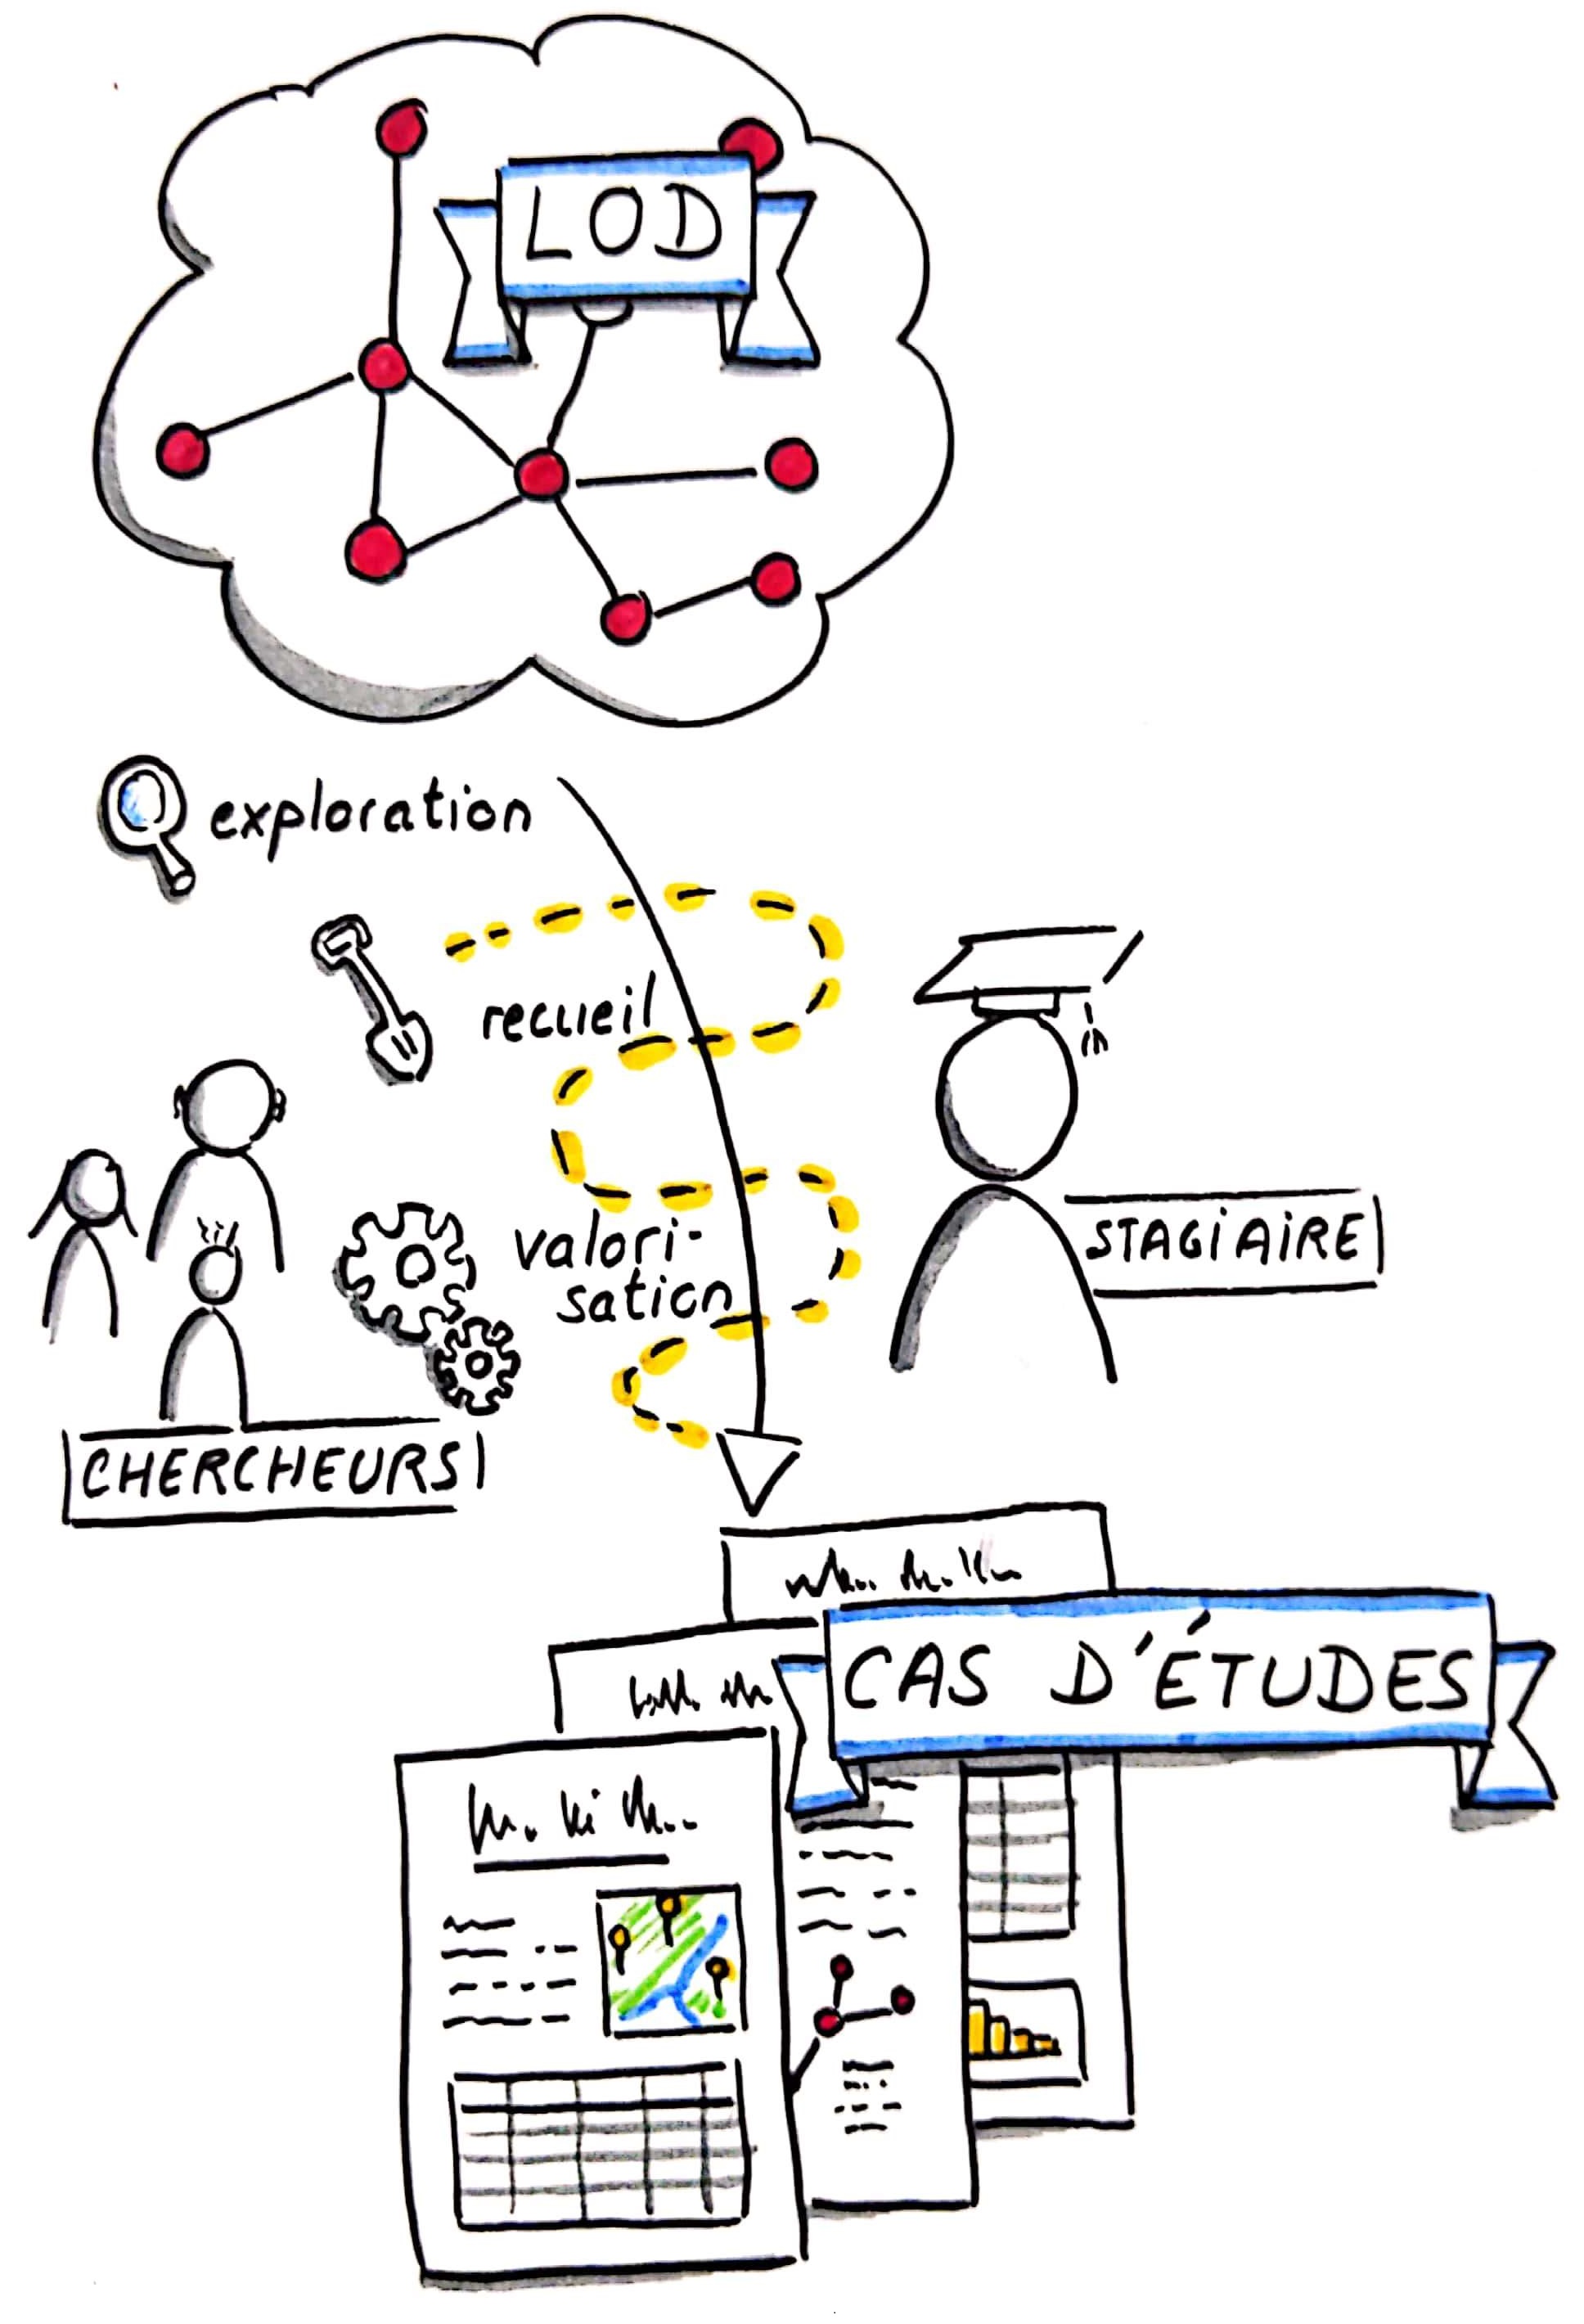 LOD
exploration
recueil
valori-
sation
STAGIAIRE
CHERCHEURS
CAS D'ÉTUDES